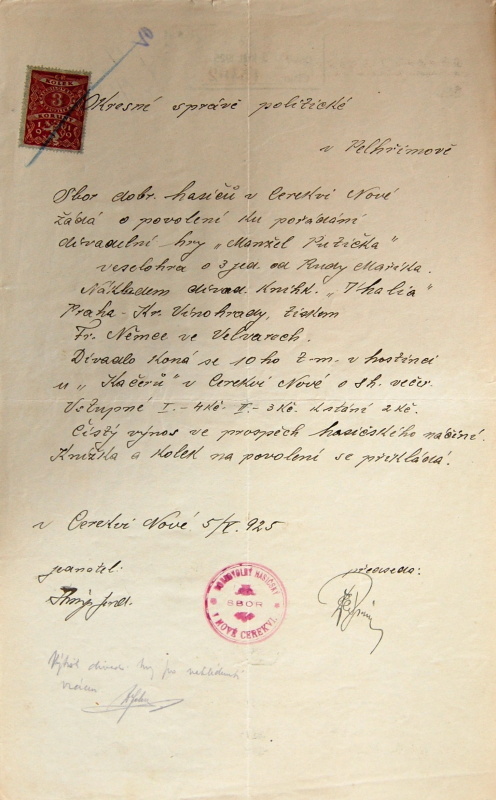 KOLEK
3
KORUNY
1919
Okresní správě politické
v Pelhřimově
Sbor dobr. hasičů v Cerekvi Nové
žádá o povolení ku pořádání
divadelní hry „ManželRužička"
veselohra o 3 jed. od Rudy Maříka.
Nákladem divad. knihk. „Thalia"
Praha - Kr. Vinohrady, tiskem
Fr. Němce ve Velvarech.
Divadlo koná se 10ho t-m. v hostinci
u „Kačerů" v Cerekvi Nové o 8h. večer.
Vstupné I. - 4Kč. II. - 3Kč. k stání 2 kč.
Čistý výnos ve prospěch hasičského náčiní.
Knížka a kolek na povolení se přikládá.
v Cerekvi Nové 5/X. 925
jednatel:
předseda:
DOBROVOLNÝ HASIČSKÝ
SBOR
V NOVÉ CEREKVI.